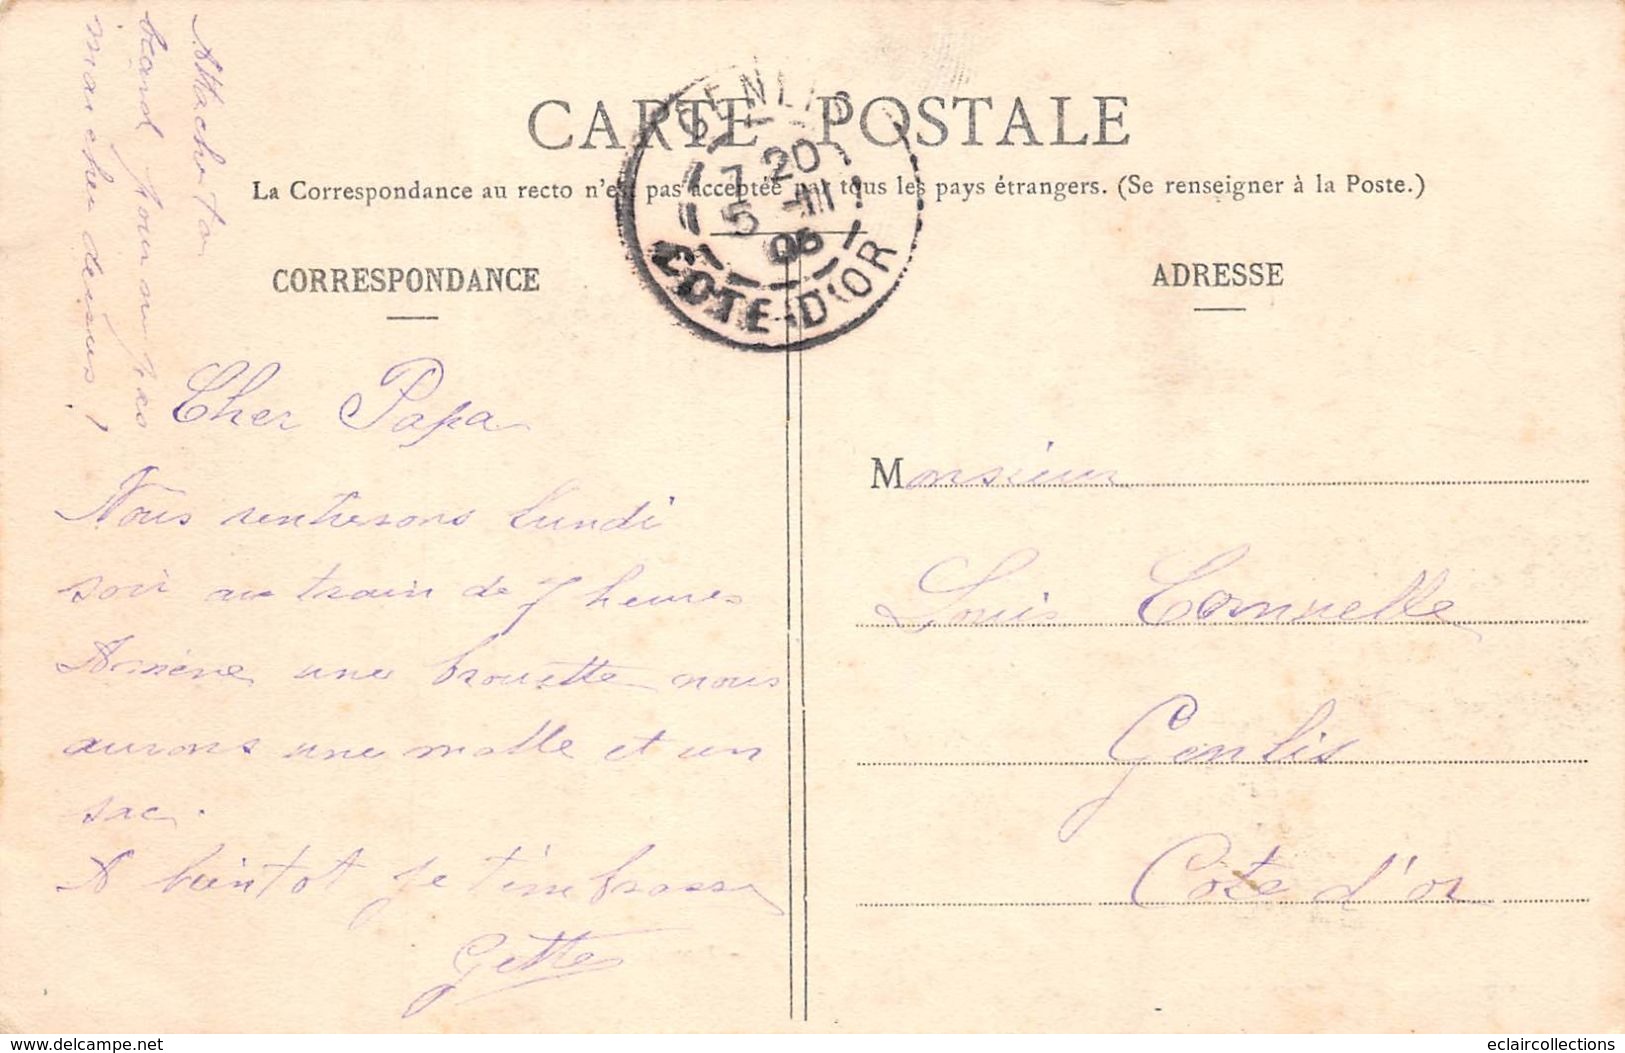 CARTE POSTALE
La Correspondance au recto n'est pas acceptée par tous les pays étrangers. (Se renseigner à la Poste.)
GENLIS
7 20
5 -11
06
COTE-D'OR
CORRESPONDANCE
ADRESSE
Attache ton
pour ne pas
marcher dessus !
Cher Papa
Nous rentrerons lundi
soir au train de 7 heures
Amène une brouette nous
aurons une malle et un
sac.
A bientot je t'embrasse
Gette
Monsieur
Louis Cornuelle
Genlis
Côte d'or
www.delcampe.net
eclaircollections